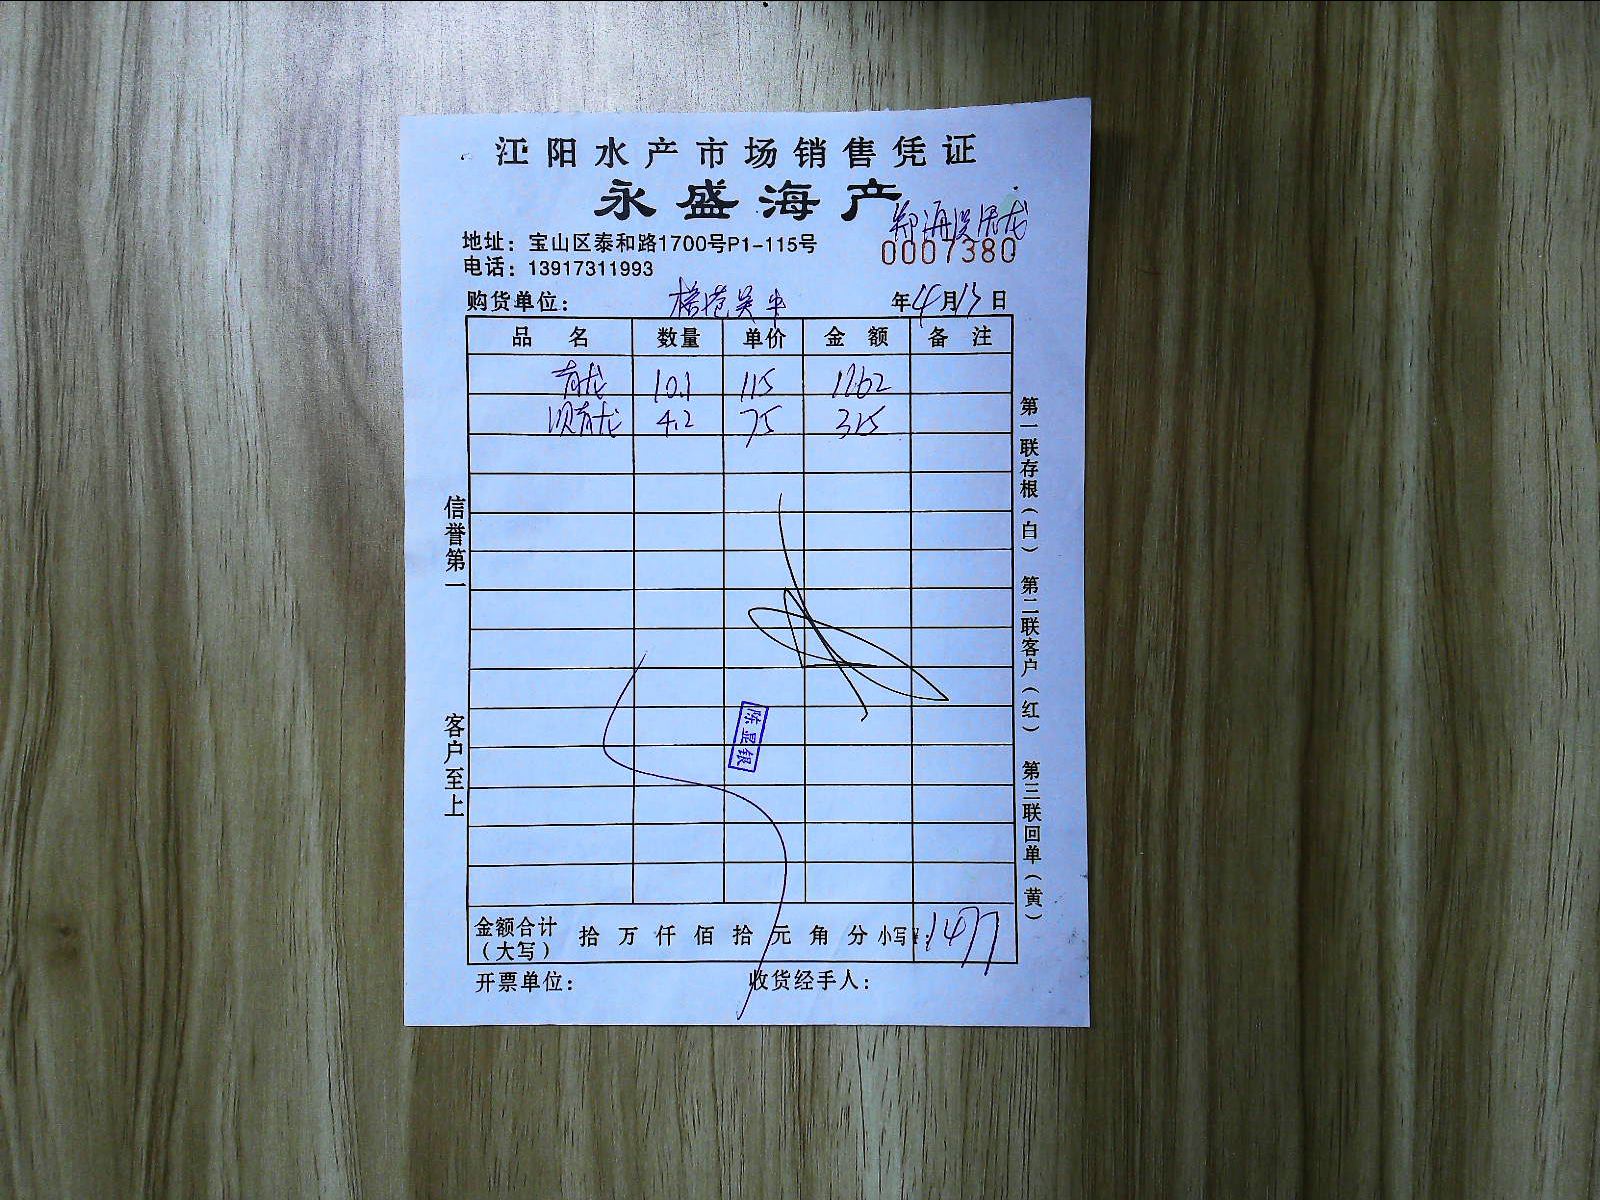 江阳水产市场销售凭证
永盛海产
地址：宝山区泰和路1700号P1-115号
0007380
电话：13917311993
购货单位： 年4月13日
品名 数量 单价 金额 备注
青龙 10.1 115 1162
青龙 4.2 75 315
信誉第一
客户至上
陈显银
第一联存根（白） 第二联客户（红） 第三联回单（黄）
金额合计（大写） 拾 万 仟 佰 拾 元 角 分 小写¥：1477
开票单位： 收货经手人：